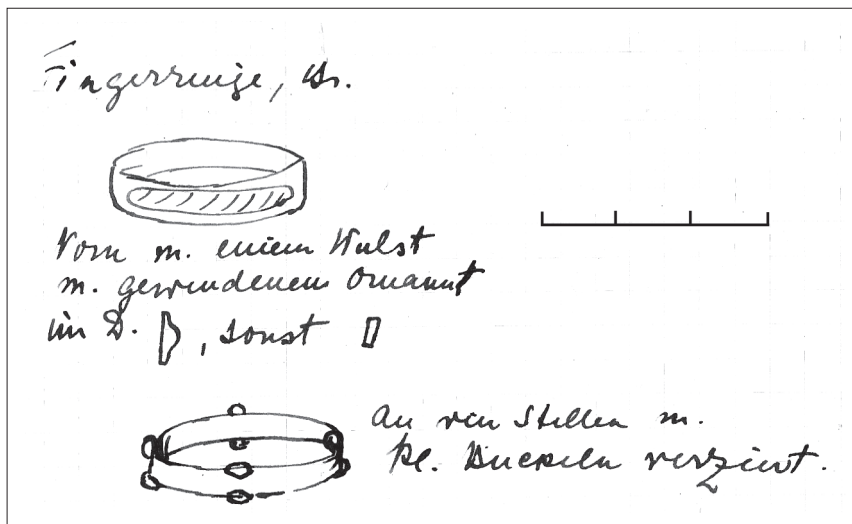 Fingerringe, Br.
Vorn m. einem Wulst
m. gewundenem Ornamnt
im D. , sonst
An vier Stellen m.
kl. Buckeln verziert.